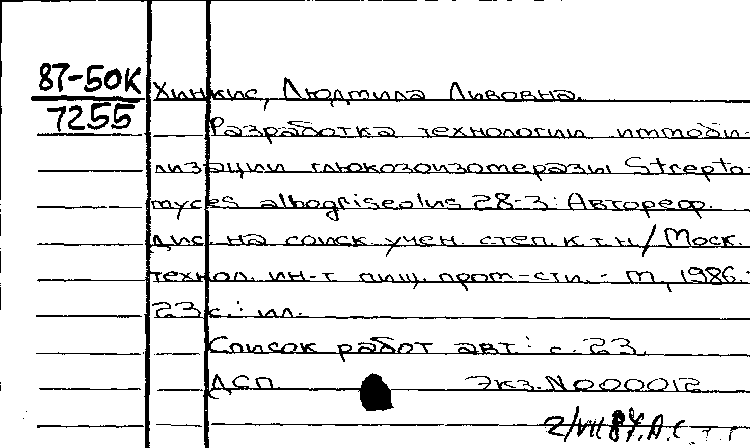 87-50К
7255
Хинкис, Людмила Ливовна.
Разработка технологии иммоби-
лизации глюкозоизомеразы Strepto-
myces albogriseolus 28-3: Автореф.
дис. на соиск. учен. степ. к.т.н / Моск.
технол. ин-т пищ. пром-сти. - М, 1986.-
23 с.: ил.
Список работ авт.: с. 23
ДСП Экз.N000012
2/VII 87.